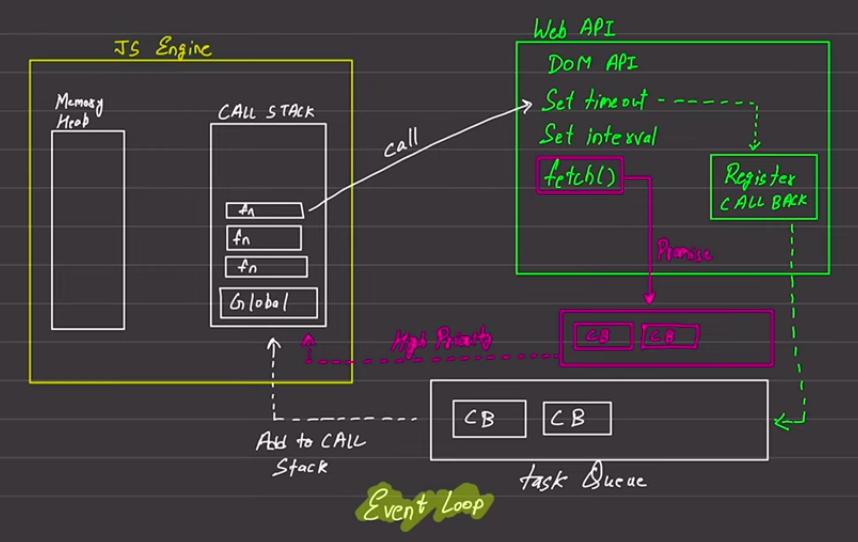 JS Engine
Memory
Heab
CALL STACK
fn
fn
fn
Global
call
Web API
DOM API
Set timeout
Set interval
fetch()
Register
CALL BACK
Promise
High Priority
CB
CB
CB
CB
Add to CALL
Stack
task Queue
Event Loop